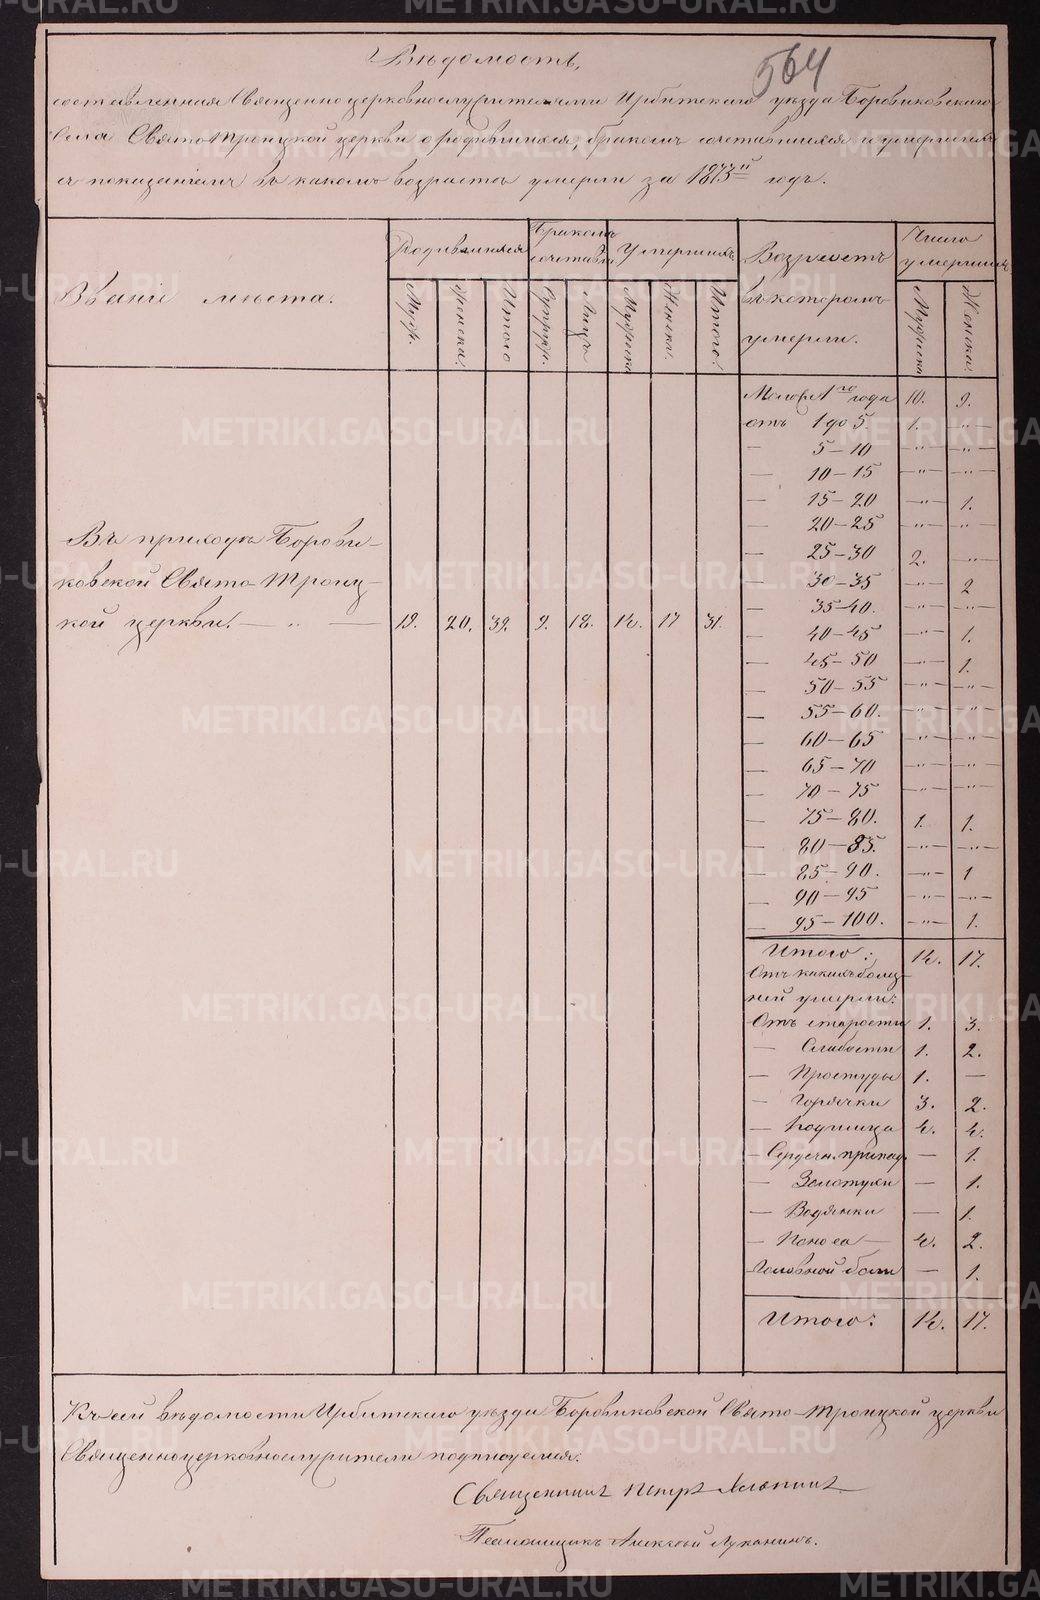 Вѣдомость,
564
составленная Священноцерковнослужителями Ирбитскаго уѣзда Боровиковскаго
Села Свято-Троицкой церкви о родившихся, бракомъ сочетавшихся и умершихъ
съ показаніемъ въ какомъ возрастѣ умерли за 1873й годъ.
Званіе мѣста.
Родившихся
Бракомъ сочетав.
Умершихъ
Возрастъ въ которомъ умерли.
Число умершихъ
Муж. Женска. Итого Супруж. Лицъ Мужеска Женск. Итого. Мужеска Женска.
Въ приходѣ Борови-
ковской Свято-Троиц-
кой церкви. — " — 19. 20. 39. 9. 18. 14. 17 31.
Менѣе 1го года 10. 9.
отъ 1 до 5. 1. —"—
— 5—10 —"— —"—
— 10—15 —"— —"—
— 15—20 —"— 1.
— 20—25 —"— —"—
— 25—30 2. —"—
— 30—35 —"— 2
— 35—40. —"— —"—
— 40—45 —"— 1.
— 45—50 —"— 1.
— 50—55 —"— —"—
— 55—60. —"— —"—
— 60—65 —"— —"—
— 65—70 —"— —"—
— 70—75 —"— —"—
— 75—80. 1. 1.
— 80—85. —"— —"—
— 85—90. —"— 1
— 90—95 —"— —"—
— 95—100. —"— 1.
Итого: 14. 17.
Отъ какихъ болѣз-
ней умерли:
Отъ старости 1. 3.
— Слабости 1. 2.
— Простуды 1. —
— Горячки 3. 2.
— Родимца 4. 4.
— Сердечн. припад. — 1.
— Золотухи — 1.
— Водянки — 1.
— Поноса — 4. 2.
Головной боли — 1.
Итого: 14. 17.
Къ сей вѣдомости Ирбитскаго уѣзда Боровиковской Свято-Троицкой церкви
Священноцерковнослужители подписуемся:
Священникъ Петръ
Псаломщикъ Алексѣй Луканинъ.
METRIKI.GASO-URAL.RU